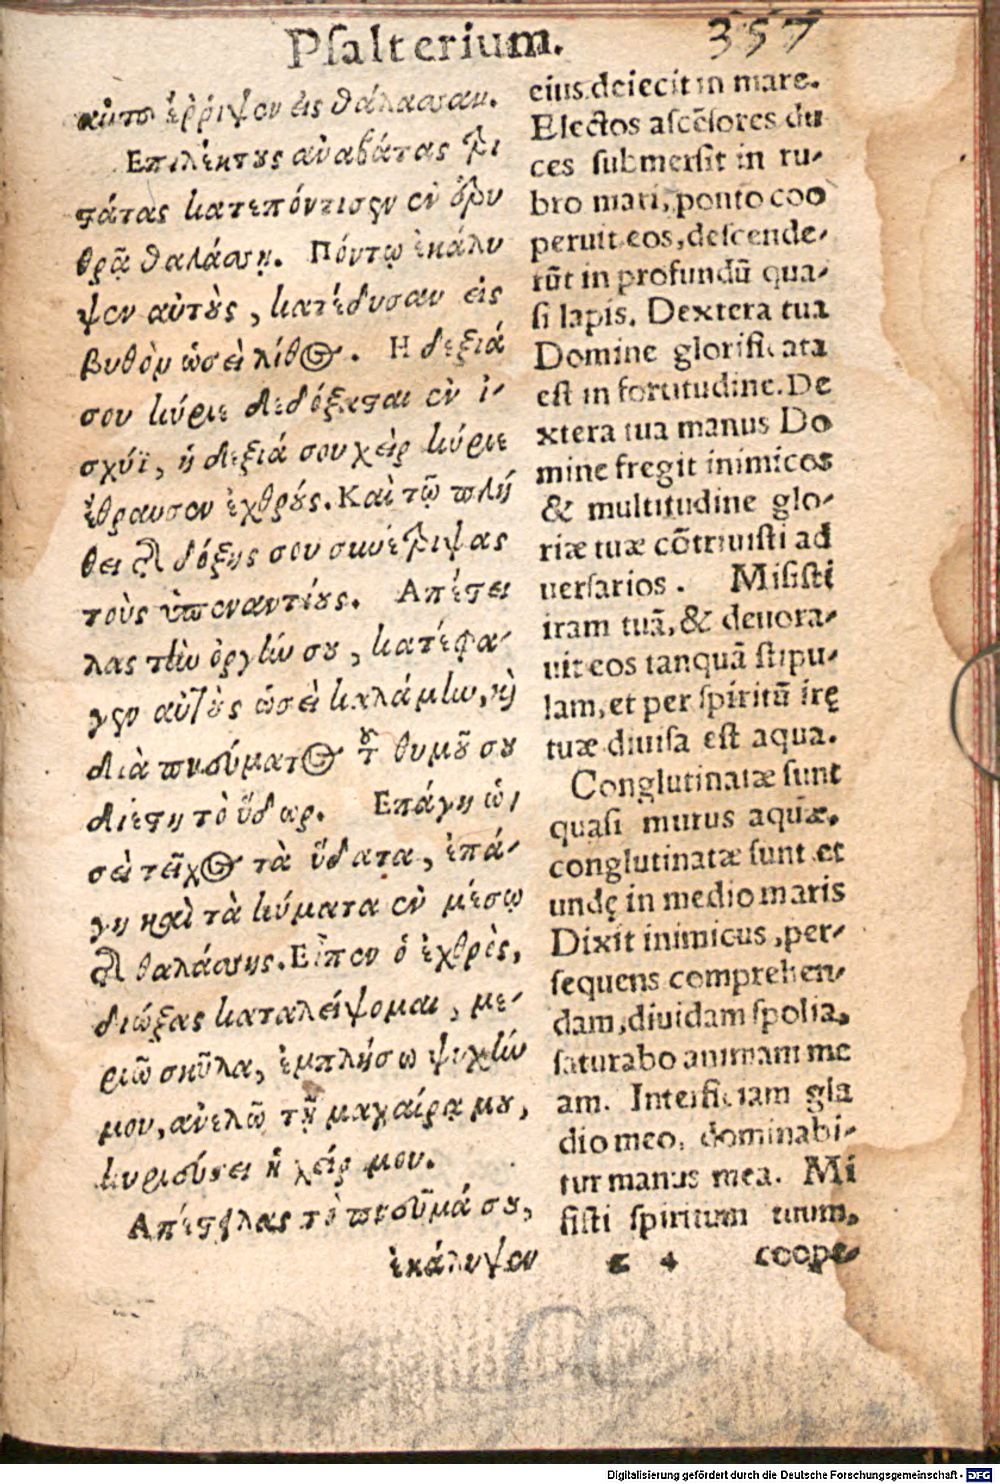 Psalterium.
357
αὐτοῦ ἔρριψεν εἰς θάλασσαν.
Επιλέκτους ἀναβάτας τρι
στάτας κατεπόντισεν ἐν ἐρυ
θρᾷ θαλάσσῃ. Πόντῳ ἐκάλυ
ψεν αὐτοὺς, κατέδυσαν εἰς
βυθὸν ὡσεὶ λίθος. Η δεξιά
σου κύριε δεδόξασαι ἐν ἰ-
σχύϊ, ἡ δεξιά σου χεὶρ κύριε
ἔθραυσεν ἐχθρούς. Καὶ τῷ πλή
θει τῆς δόξης σου συνέτριψας
τοὺς ὑπεναντίους. Απέστει
λας τὴν ὀργήν σου, κατέφα-
γεν αὐτοὺς ὡσεὶ καλάμην, καὶ
διὰ πνεύματος τοῦ θυμοῦ σου
διέστη τὸ ὕδωρ. Επάγη ὡ-
σεὶ τεῖχος τὰ ὕδατα, ἐπά-
γη καὶ τὰ κύματα ἐν μέσῳ
τῆς θαλάσσης. Εἶπεν ὁ ἐχθρὸς,
διώξας καταλείψομαι, με-
ριῶ σκῦλα, ἐμπλήσω ψυχὴν
μου, ἀνελῶ τῇ μαχαίρᾳ μου,
κυριεύσει ἡ χείρ μου.
Απέστειλας τὸ πνεῦμά σου,
ἐκάλυψεν
eius deiecit in mare.
Electos ascẽsores du
ces submersit in ru-
bro mari, ponto coo
peruit eos, descende-
rũt in profundũ qua-
si lapis. Dextera tua
Domine glorificata
est in fortitudine. De
xtera tua manus Do
mine fregit inimicos
& multitudine glo-
riæ tuæ cõtriuisti ad
uersarios. Misisti
iram tuã, & deuora-
uit eos tanquã stipu-
lam, et per spiritũ irę
tuæ diuisa est aqua.
Conglutinatæ sunt
quasi murus aquæ,
conglutinatæ sunt et
undę in medio maris
Dixit inimicus, per-
sequens comprehen-
dam, diuidam spolia,
saturabo animam me
am. Interficiam gla
dio meo, dominabi-
tur manus mea. Mi
sisti spiritum tuum,
coope-
Digitalisierung gefördert durch die Deutsche Forschungsgemeinschaft - DFG